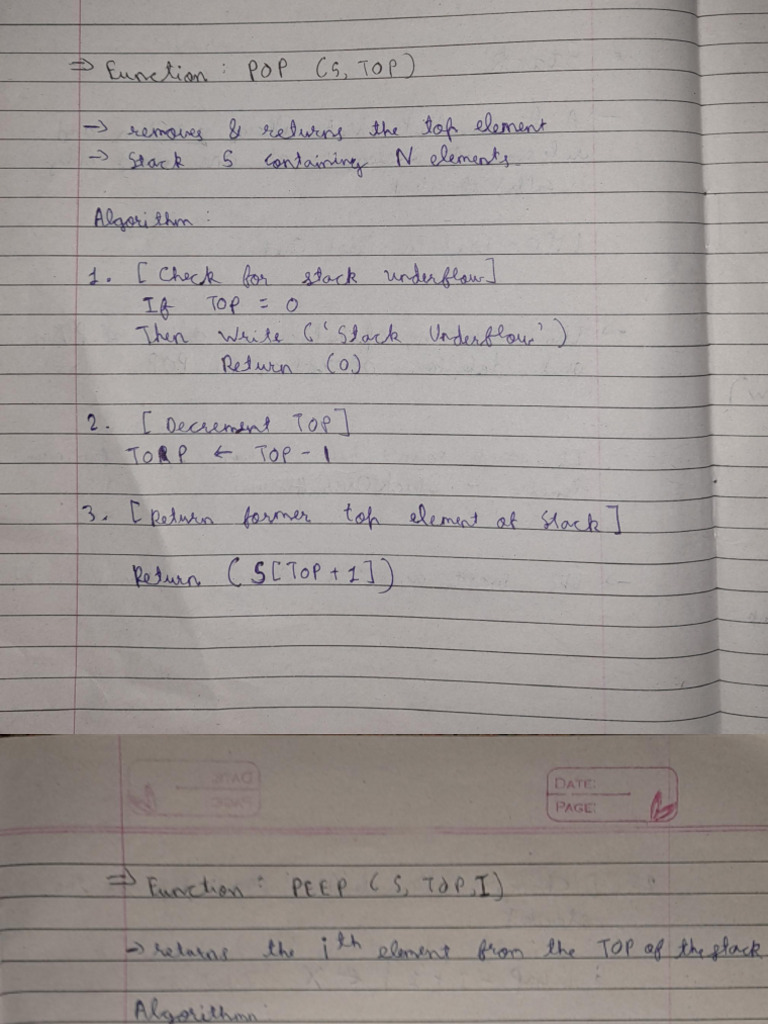 ⇒ Function : POP (S, TOP)
→ removes & returns the top element
→ Stack S containing N elements
Algorithm :
1. [ Check for stack underflow]
If TOP = 0
Then Write ('Stack Underflow')
Return (0)
2. [ Decrement TOP]
TOP ← TOP - 1
3. [Return former top element of stack]
Return (S[TOP + 1])
DATE:
PAGE:
⇒ Function : PEEP (S, TOP, I)
→ returns the ith element from the TOP of the stack
Algorithm: